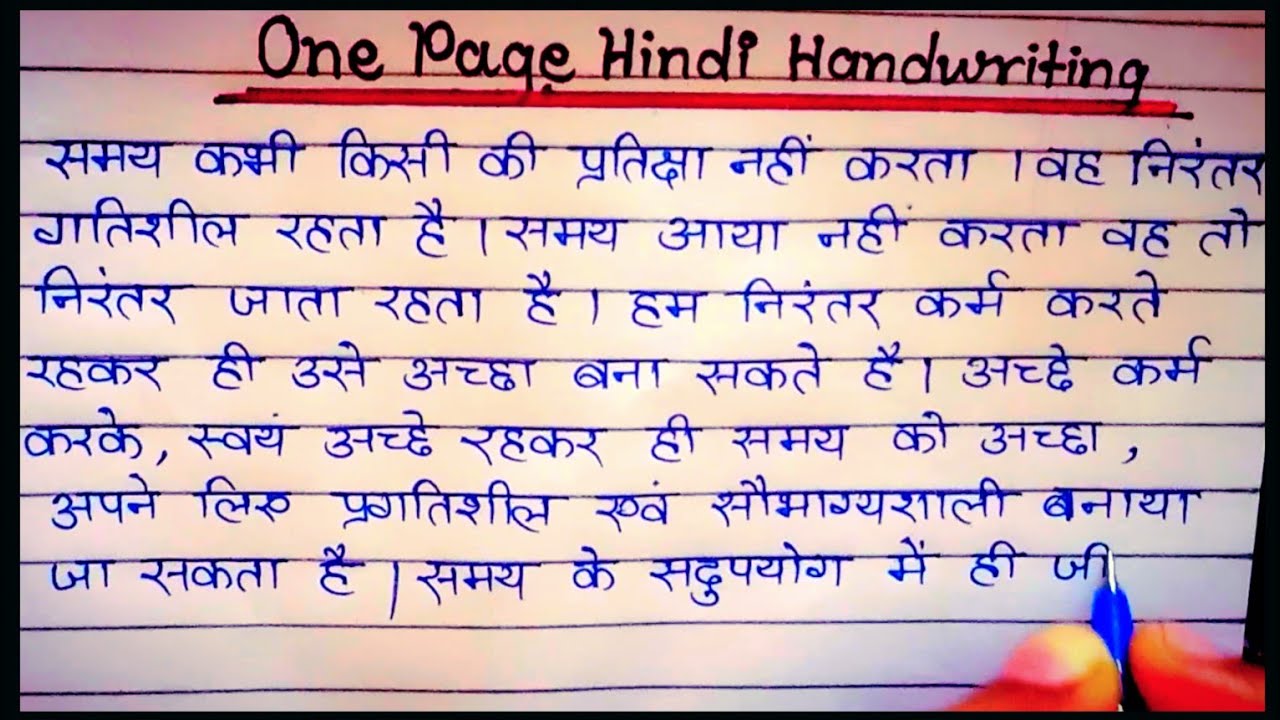 One Page Hindi Handwriting
समय कभी किसी की प्रतिक्षा नहीं करता । वह निरंतर
गतिशील रहता है । समय आया नहीं करता वह तो
निरंतर जाता रहता है । हम निरंतर कर्म करते
रहकर ही उसे अच्छा बना सकते है । अच्छे कर्म
करके, स्वयं अच्छे रहकर ही समय को अच्छा ,
अपने लिए प्रगतिशील एवं सौभाग्यशाली बनाया
जा सकता है । समय के सदुपयोग में ही जी